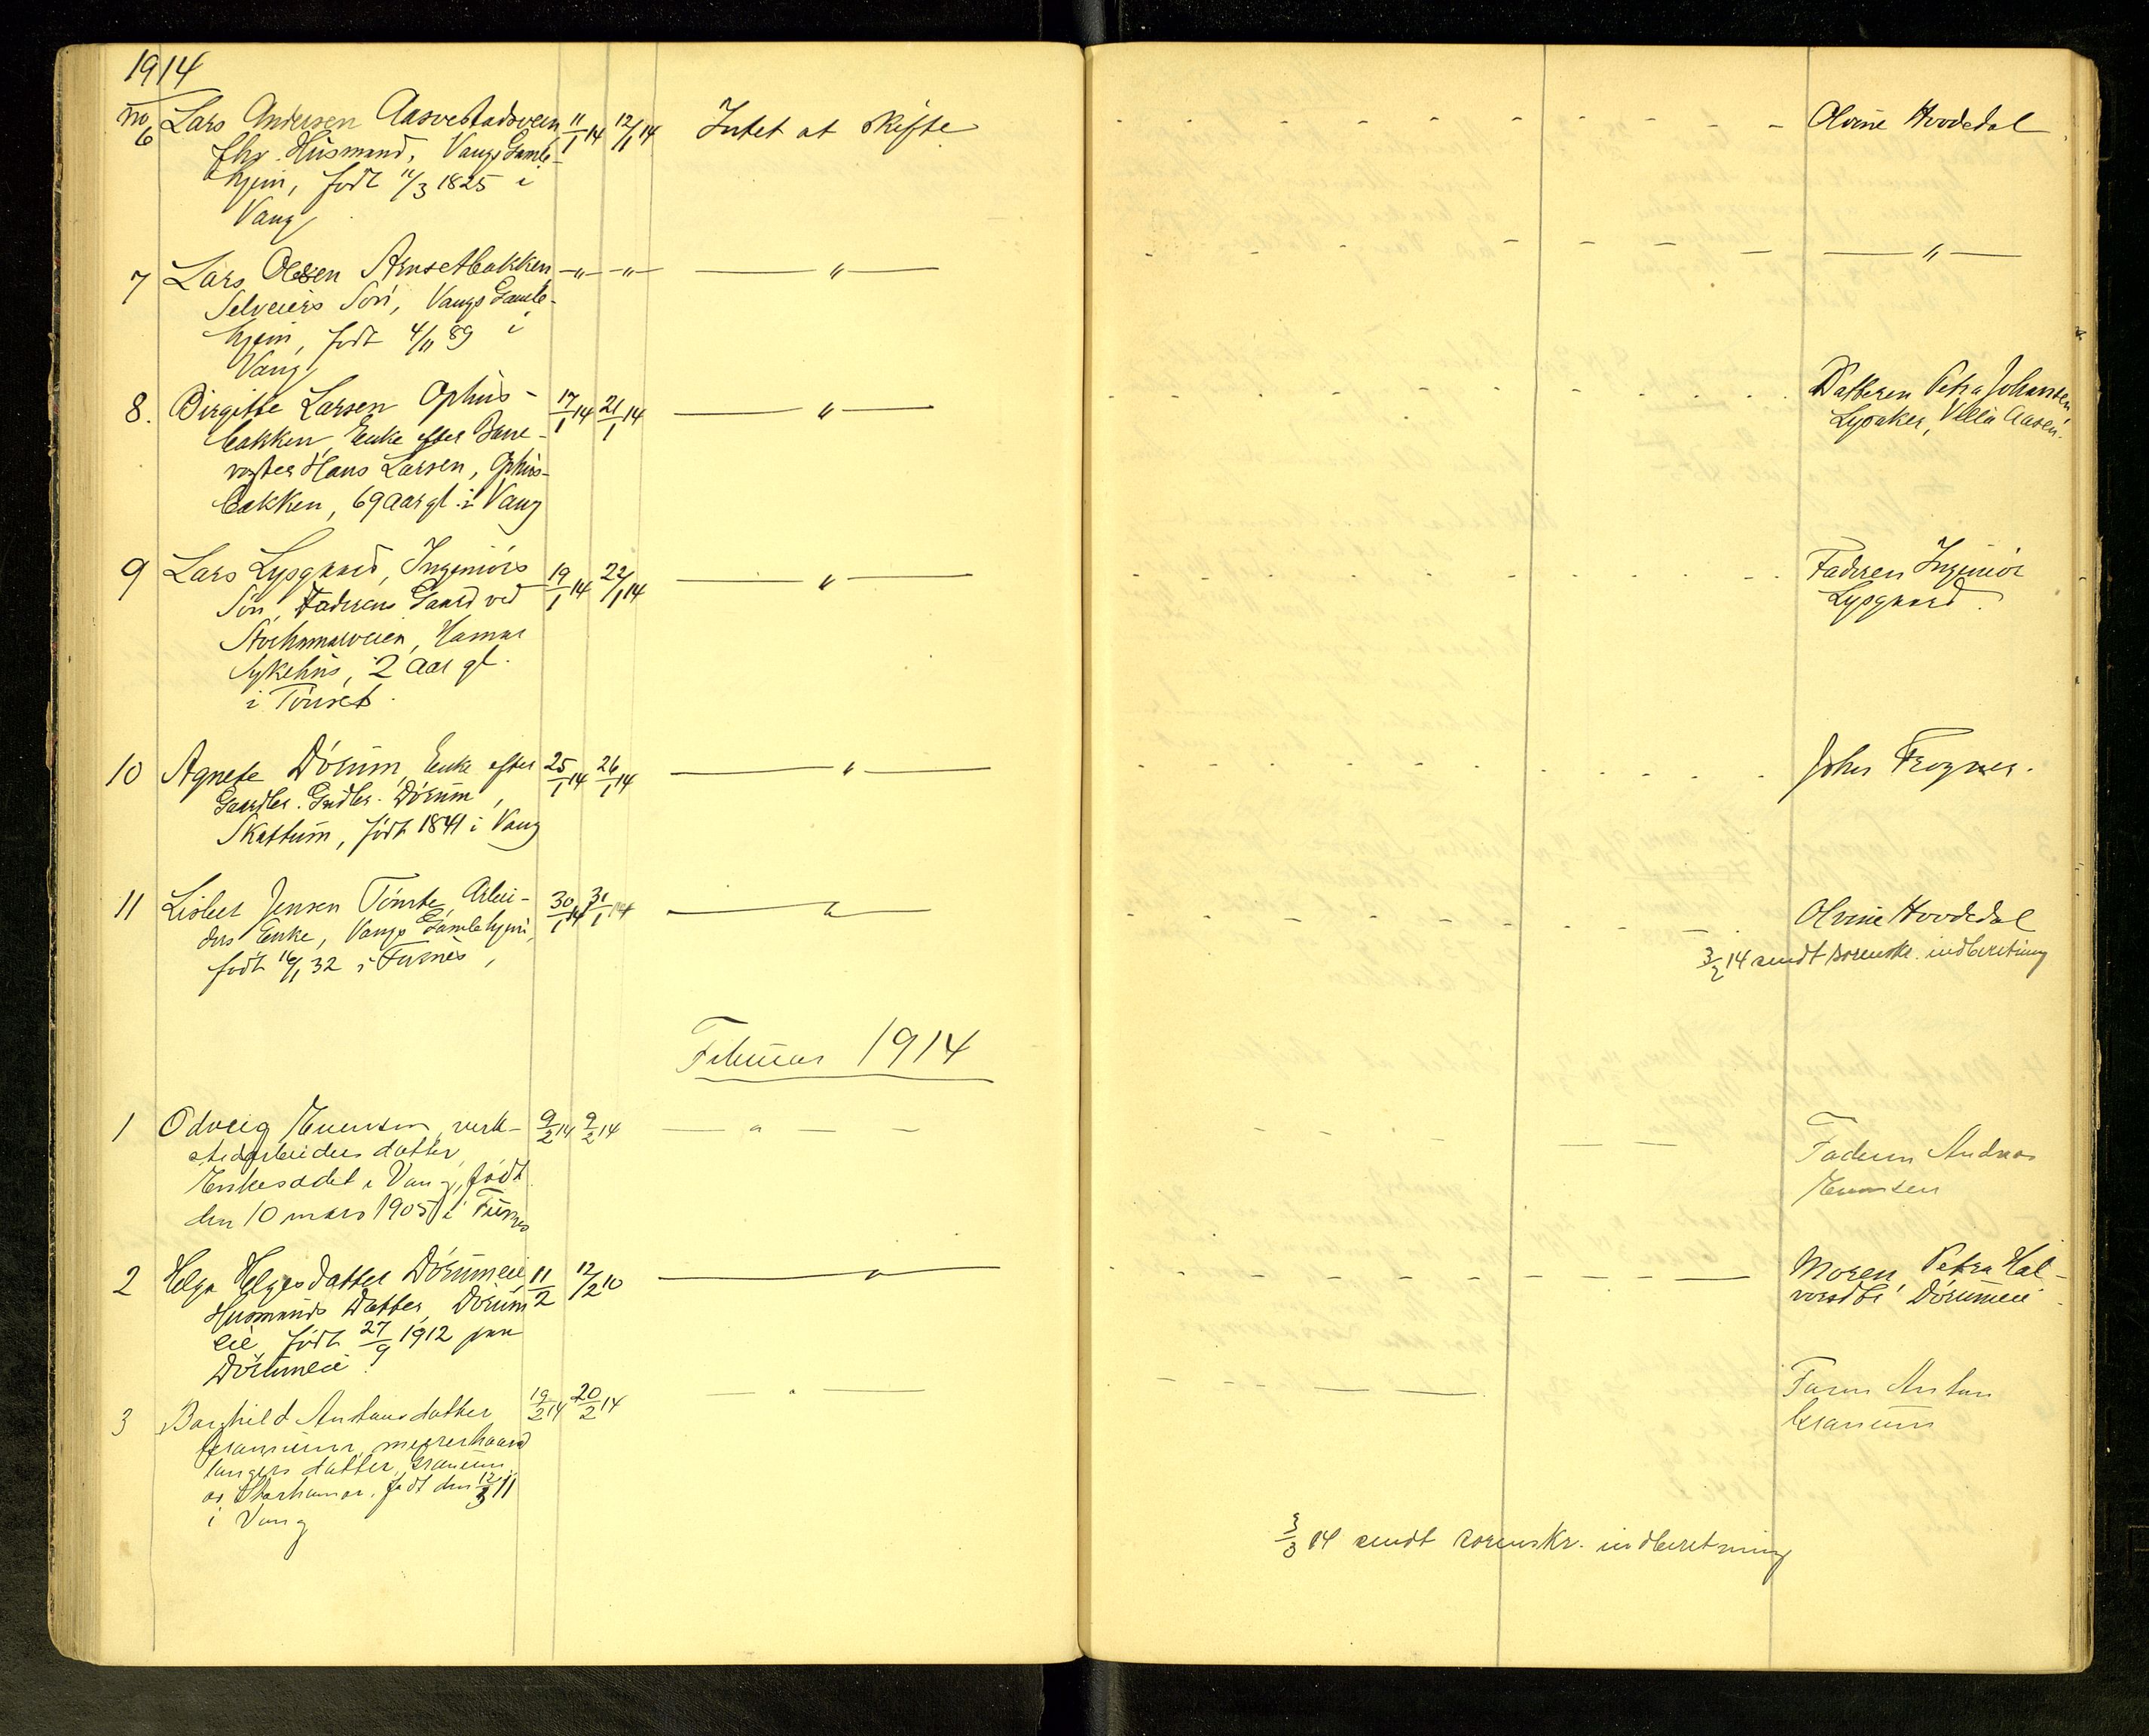 1914
No 6 Lars Andersen Aasvestadsveen 11/1 14 12/1 14 Intet at skifte Olvine Hoodedal
fhv. Husmand, Vangs Gamle-
hjem, født 11/3 1825 i
Vang
7 Lars Olsen Arnsetbakken -"- -"- " "
Selveiers Søn, Vangs Gamle-
hjem, født 4/11 89 i
Vang
8. Birgitte Larsen Ophus- 17/1 14 21/1 14 " Datteren Petra Johansen
bakken, Enke efter Bane- Lysaker, Villa Aasen.
vogter Hans Larsen, Ophus-
bakken, 69 aar gl. i Vang
9 Lars Lysgaard, Ingeniørs 19/1 14 22/1 14 " Faderen Ingeniør
Søn, Faderens Gaard ved Lysgaard.
Storhamarveien, Hamar
Sykehus, 2 aar gl.
i Tønset.
10 Agnete Dørum, Enke efter 25/1 14 26/1 14 " Johs Frogner.
Gaardbr. Gudbr. Dørum,
Skattum, født 1841 i Vang
11 Lisbet Jensen Tomte, Arbei- 30/1 14 31/1 14 " Olvine Hoodedal
ders Enke, Vangs Gamlehjem, 3/2 14 sendt sorenskr. indberetning
født 16/1 32 i Furnes,
Februar 1914
1 Odveig Evensen, verk- 9/2 14 9/2 14 " Faderen Andreas
stedarbeiders datter, Evensen
Enkesædet i Vang, født
den 10 mars 1905 i Furnes
2 Helga Helgesdatter Dørumeie 11/2 12/2 10 " Moren Petra Hal-
Husmands Datter, Dørum vorsdtr. Dørumeie
eie, født 27/9 1912 paa
Dørumeie
3 Borghild Antonsdatter 19/2 14 20/2 14 " Faren Anton
Granum, murerhaand Granum
langers datter, Granum
os Storhamar, født den 12/3 11
i Vang
3/3 14 sendt sorenskr. indberetning